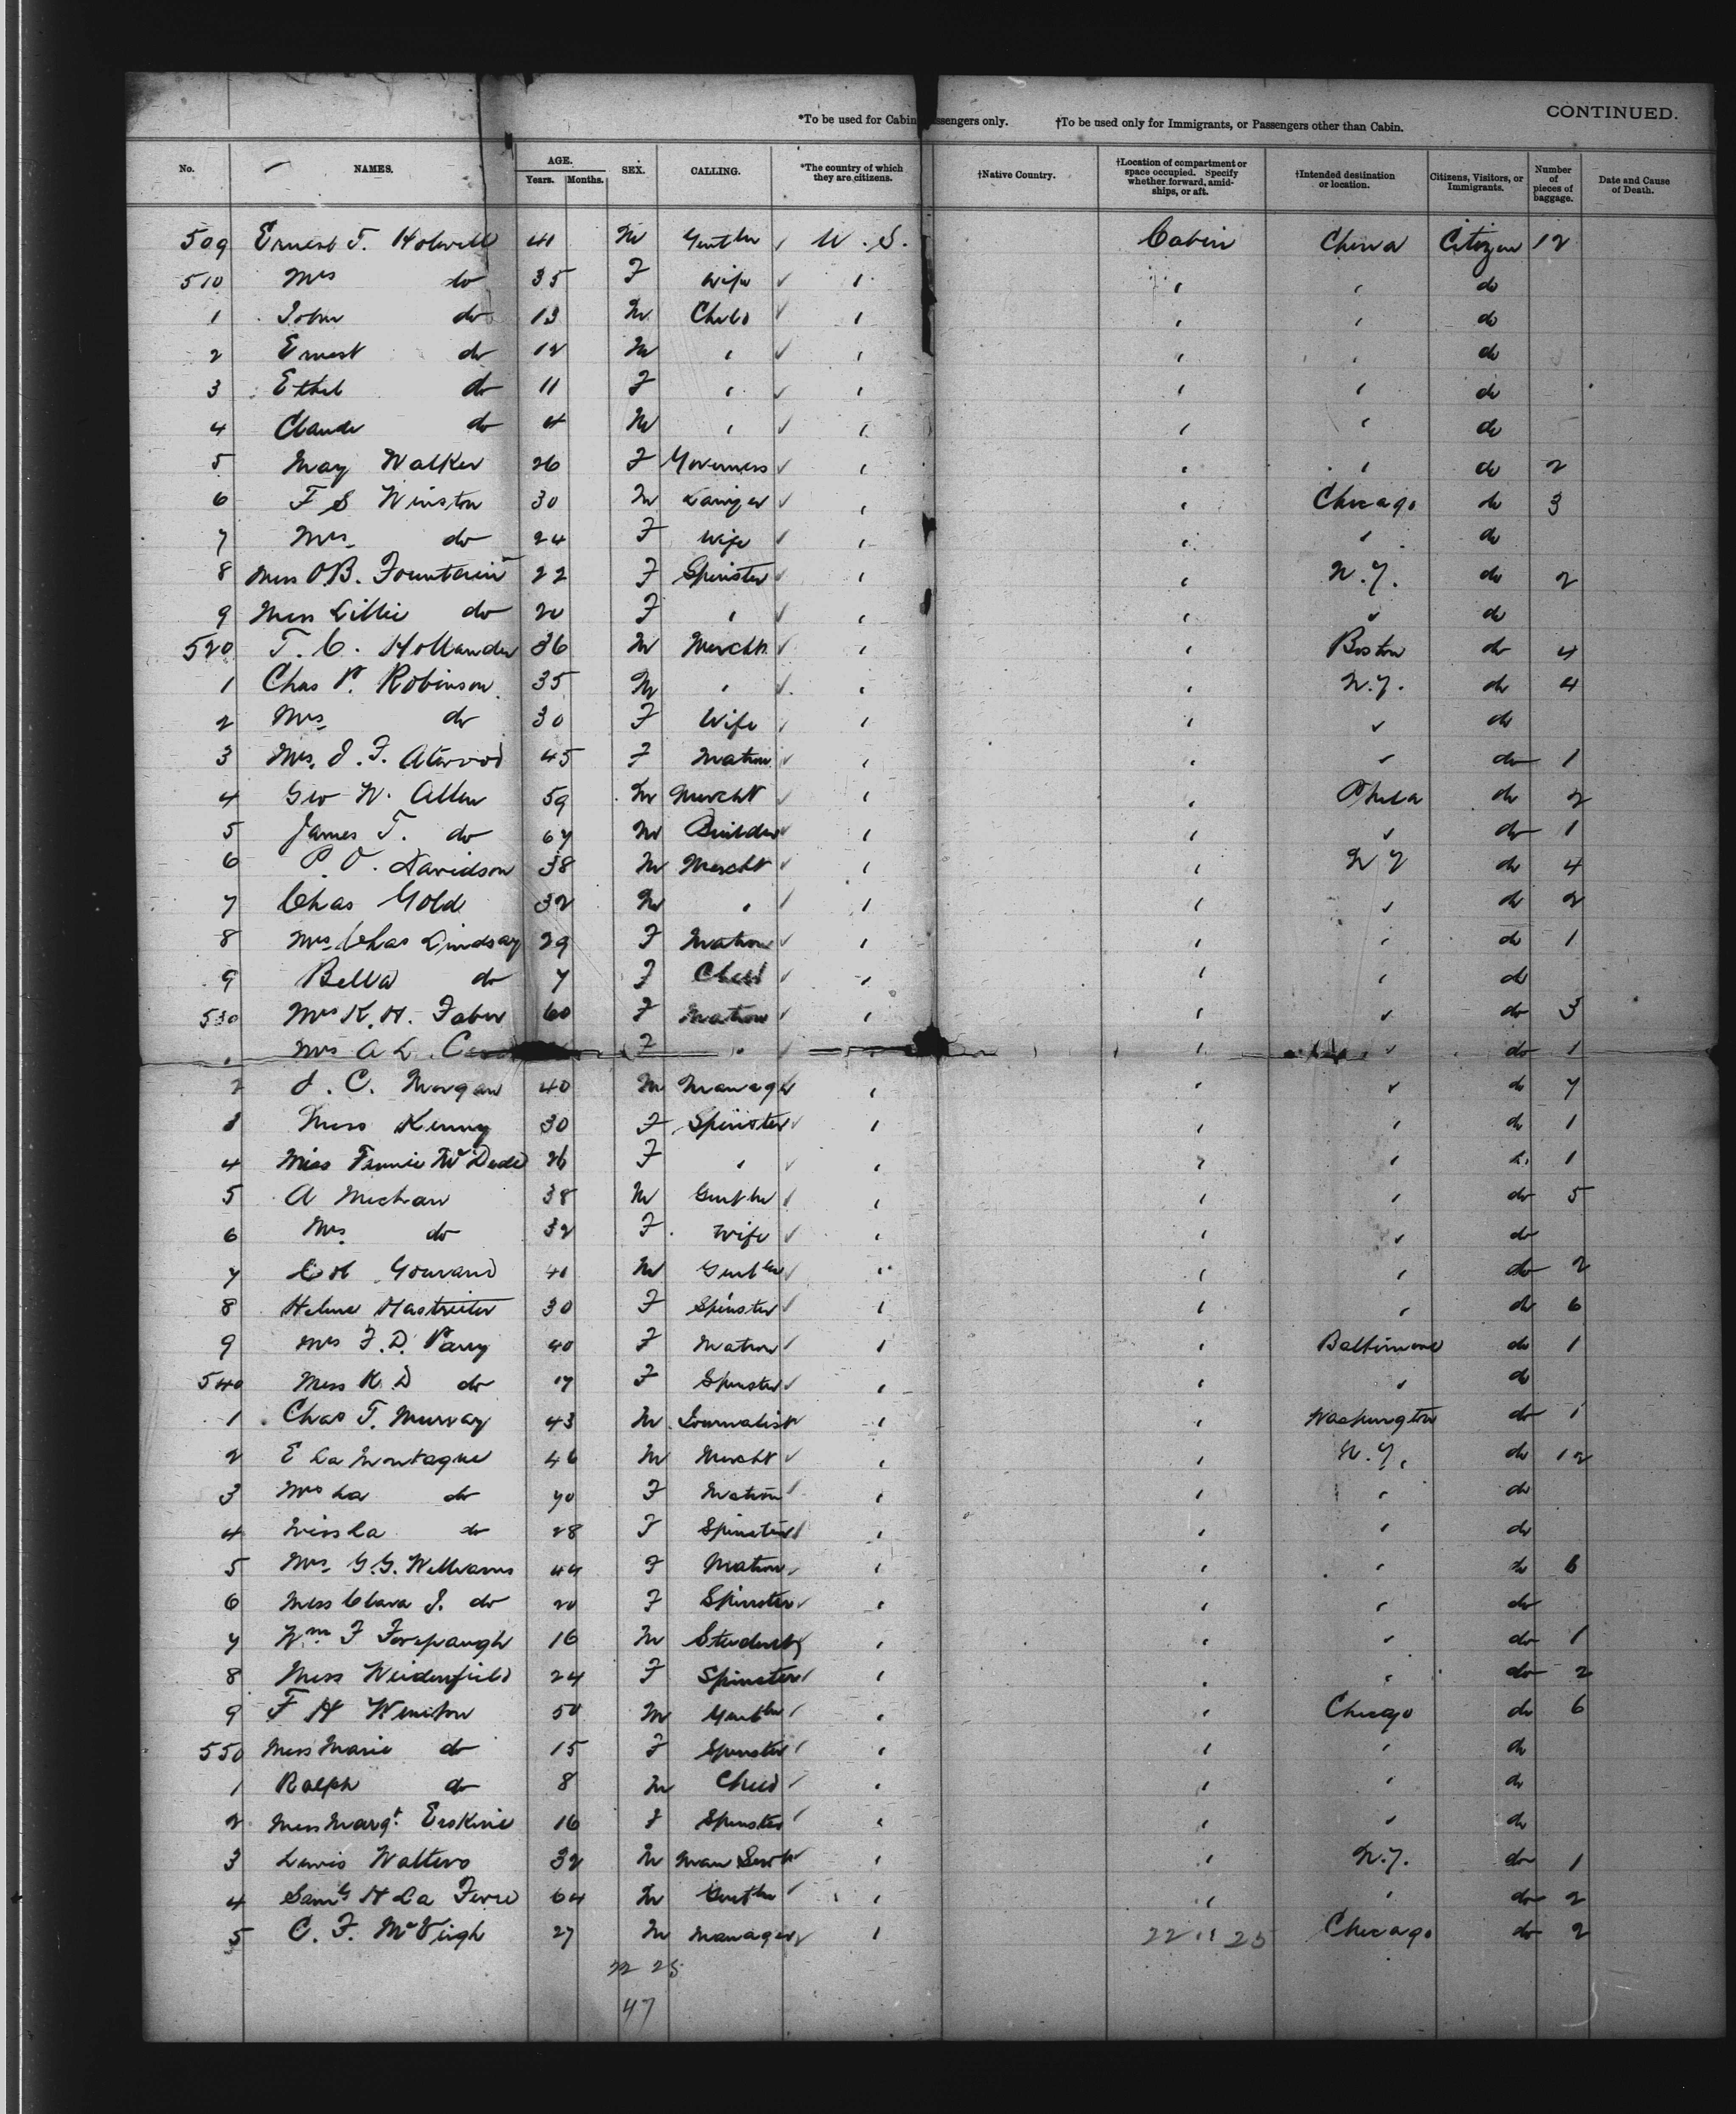 CONTINUED.
*To be used for Cabin Passengers only. †To be used only for Immigrants, or Passengers other than Cabin.
No. NAMES. AGE. Years. Months. SEX. CALLING. *The country of which they are citizens. †Native Country. †Location of compartment or space occupied. Specify whether forward, amidships, or aft. †Intended destination or location. Citizens, Visitors, or Immigrants. Number of pieces of baggage. Date and Cause of Death.
509 Ernest T. 41 M Gentln U.S. Cabin China Citizen 12
510 Mrs do 35 F Wife " " " do
1 John do 13 M Child " " " do
2 Ernest do 12 M " " " " do
3 Ethel do 11 F " " " " do
4 Claude do 4 M " " " " do
5 May Walker 26 F Governess " " " do 2
6 F S Winston 30 M Lawyer " " Chicago do 3
7 Mrs do 24 F Wife " " " do
8 Miss O.B. Fountain 22 F Spinster " " N.Y. do 2
9 Miss Lillie do 20 F " " " " do
520 T. C. Hollander 36 M Mercht " " Boston do 4
1 Chas P. Robinson 35 M " " " N.Y. do 4
2 Mrs do 30 F Wife " " " do
3 Mrs. J. F. Atwood 45 F Matron " " " do 1
4 Geo W. Allen 59 M Mercht " " Phila do 2
5 James T. do 67 M Builder " " " do 1
6 P. O. Davidson 38 M Mercht " " N Y do 4
7 Chas Gold 32 M " " " " do 2
8 Mrs Chas Lindsay 29 F Matron " " " do 1
9 Bella do 7 F Child " " " do
530 Mrs K. H. Faber 60 F Matron " " " do 3
Mrs A L. F " " " " do 1
2 J. C. Morgan 40 M Manager " " " do 7
3 Miss Kenny 30 F Spinster " " " do 1
4 Miss Fannie 26 F " " " " do 1
5 A Michau 38 M Gentln " " " do 5
6 Mrs do 32 F Wife " " " do
7 Gouraud 41 M Gentln " " " do 2
8 Helene Hastreiter 30 F Spinster " " " do 6
9 Mrs F. D. Parry 40 F Matron " " Baltimore do 1
540 Miss K D do 17 F Spinster " " " do
1 Chas T. Murray 43 M Journalist " " Washington do 1
2 E La Montagne 46 M Mercht " " N.Y. do 12
3 Mrs La do 40 F Matron " " " do
4 Miss La do 28 F Spinster " " " do
5 Mrs G.G. Williams 44 F Matron " " " do 6
6 Miss Clara J. do 20 F Spinster " " " do
7 Wm F Forepaugh 16 M Student " " " do 1
8 Miss Weidenfield 24 F Spinster " " " do 2
9 F H Winston 50 M Gentln " " Chicago do 6
550 Miss Marie do 15 F Spinster " " " do
1 Ralph do 8 M Child " " " do
2 Miss Margt Erskine 16 F Spinster " " " do
3 Lewis Walters 32 M Man Servt " " N.Y. do 1
4 Saml H La 64 M Gentln " " " do 2
5 C. F. McVeigh 27 M Manager " 22 " 25 Chicago do 2
22 25
47